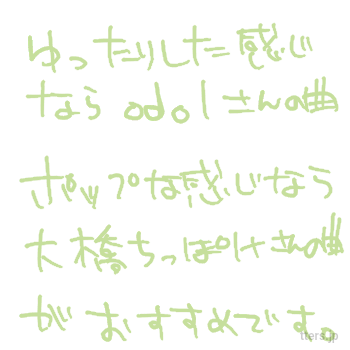 ゆったりした感じ
なら odolさんの曲
ポップな感じなら
大橋ちっぽけさんの曲
がおすすめです。